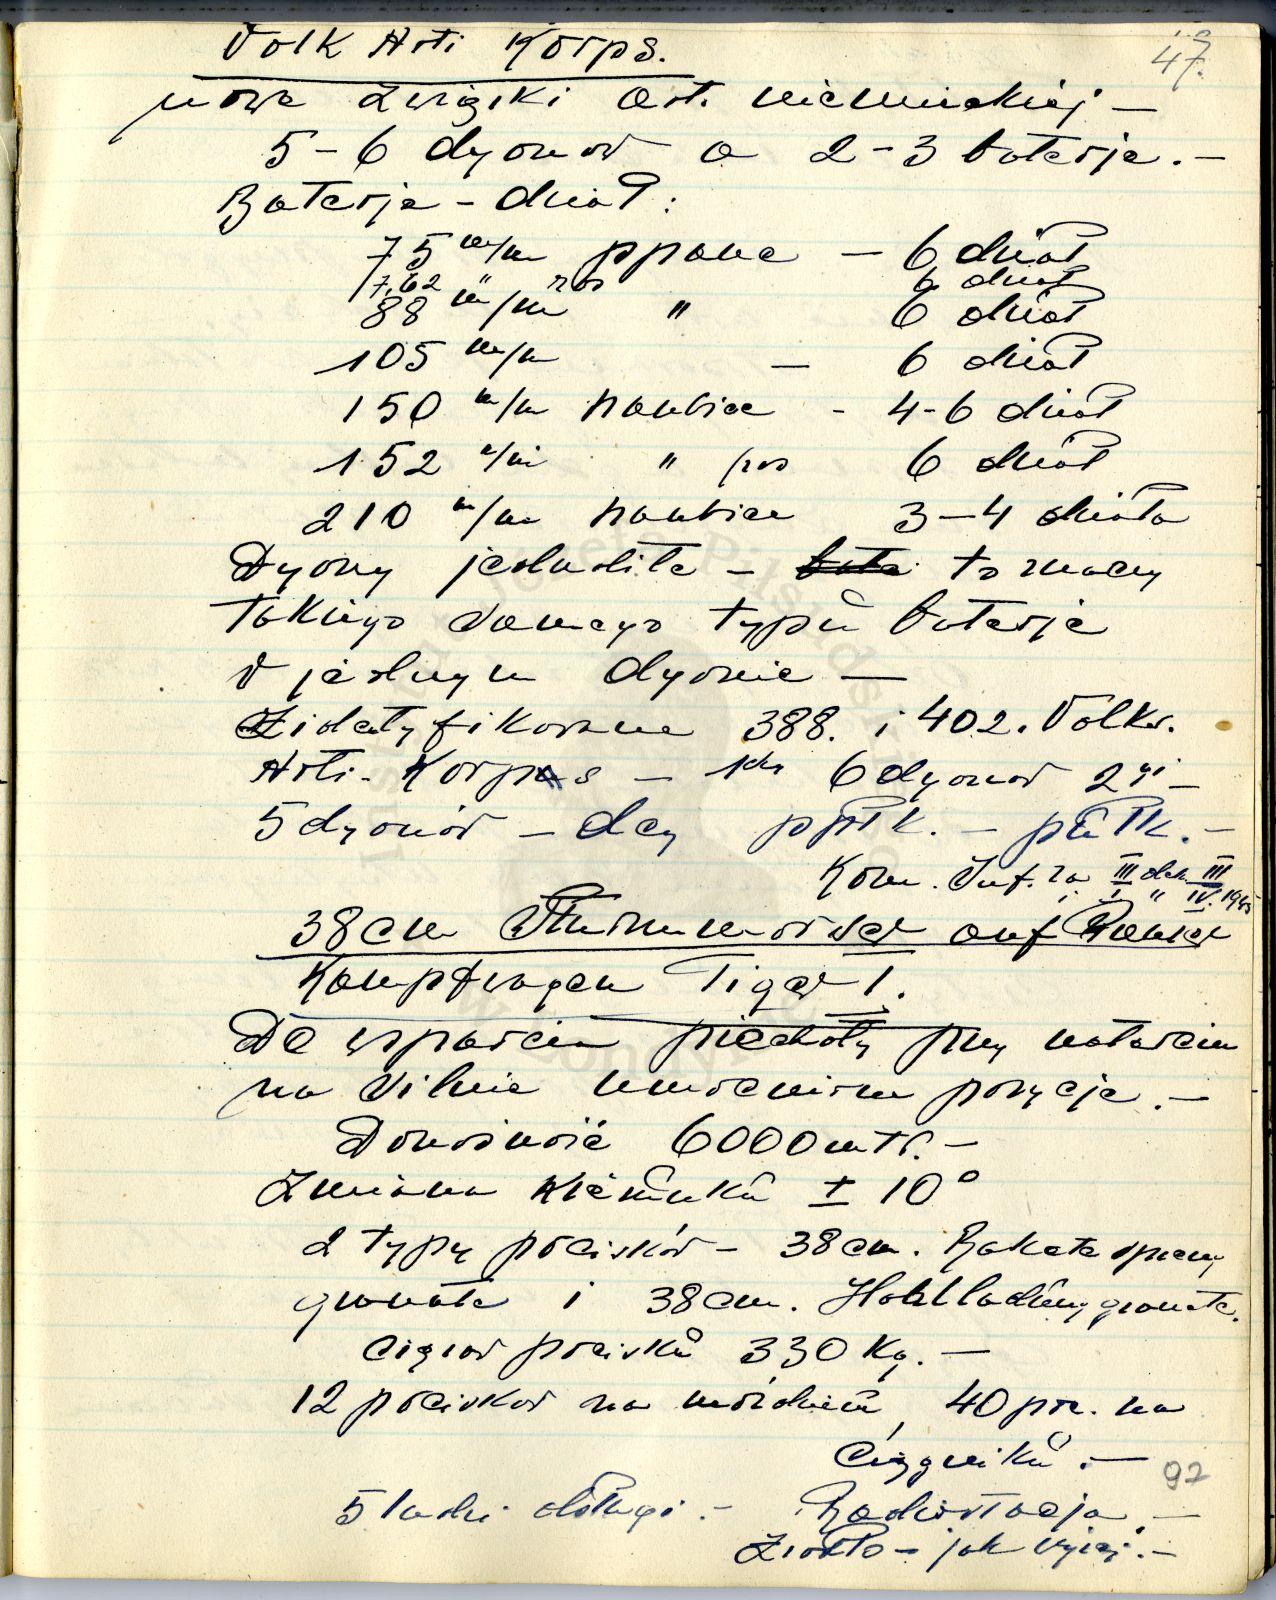 47.
Volk Arti Korps.
nowe związki art. niemieckiej —
5-6 dyonów a 2-3 baterje. —
Baterje - dział:
75 m/m ppanc — 6 dział
7,62 " ros 6 dział
88 m/m " 6 dział
105 m/m — 6 dział
150 m/m haubice - 4-6 dział
152 m/m " ros 6 dział
210 m/m haubice 3-4 działa
Dyony jednolite - to znaczy
takiego samego typu baterje
w jednym dyonie —
Zidetyfikowane 388. i 402. Volks.
Arti- Korps - 6 dyonów 2gi -
5 dyonów - dcy ppłk. - pułk. -
Kom. Inf. za III dek III
I " IV. 1945
38cm Sturmmörser auf Panzer
Kampfwagen Tiger I.
Do wsparcia piechoty przy natarciu
na silnie umocnione pozycje. —
Donośność 6000 mtr. —
Zmiana kierunku ± 10°
2 typy pocisków - 38 cm. Rakete spreng
granate i 38 cm. Hohlladung granate.
Ciężar pocisku 330 Kg. —
12 pocisków na moździerzu, 40 poc. na
ciągniku. —
92
5 ludzi obsługi. - Radiostacja. —
Źródło - jak wyżej. —